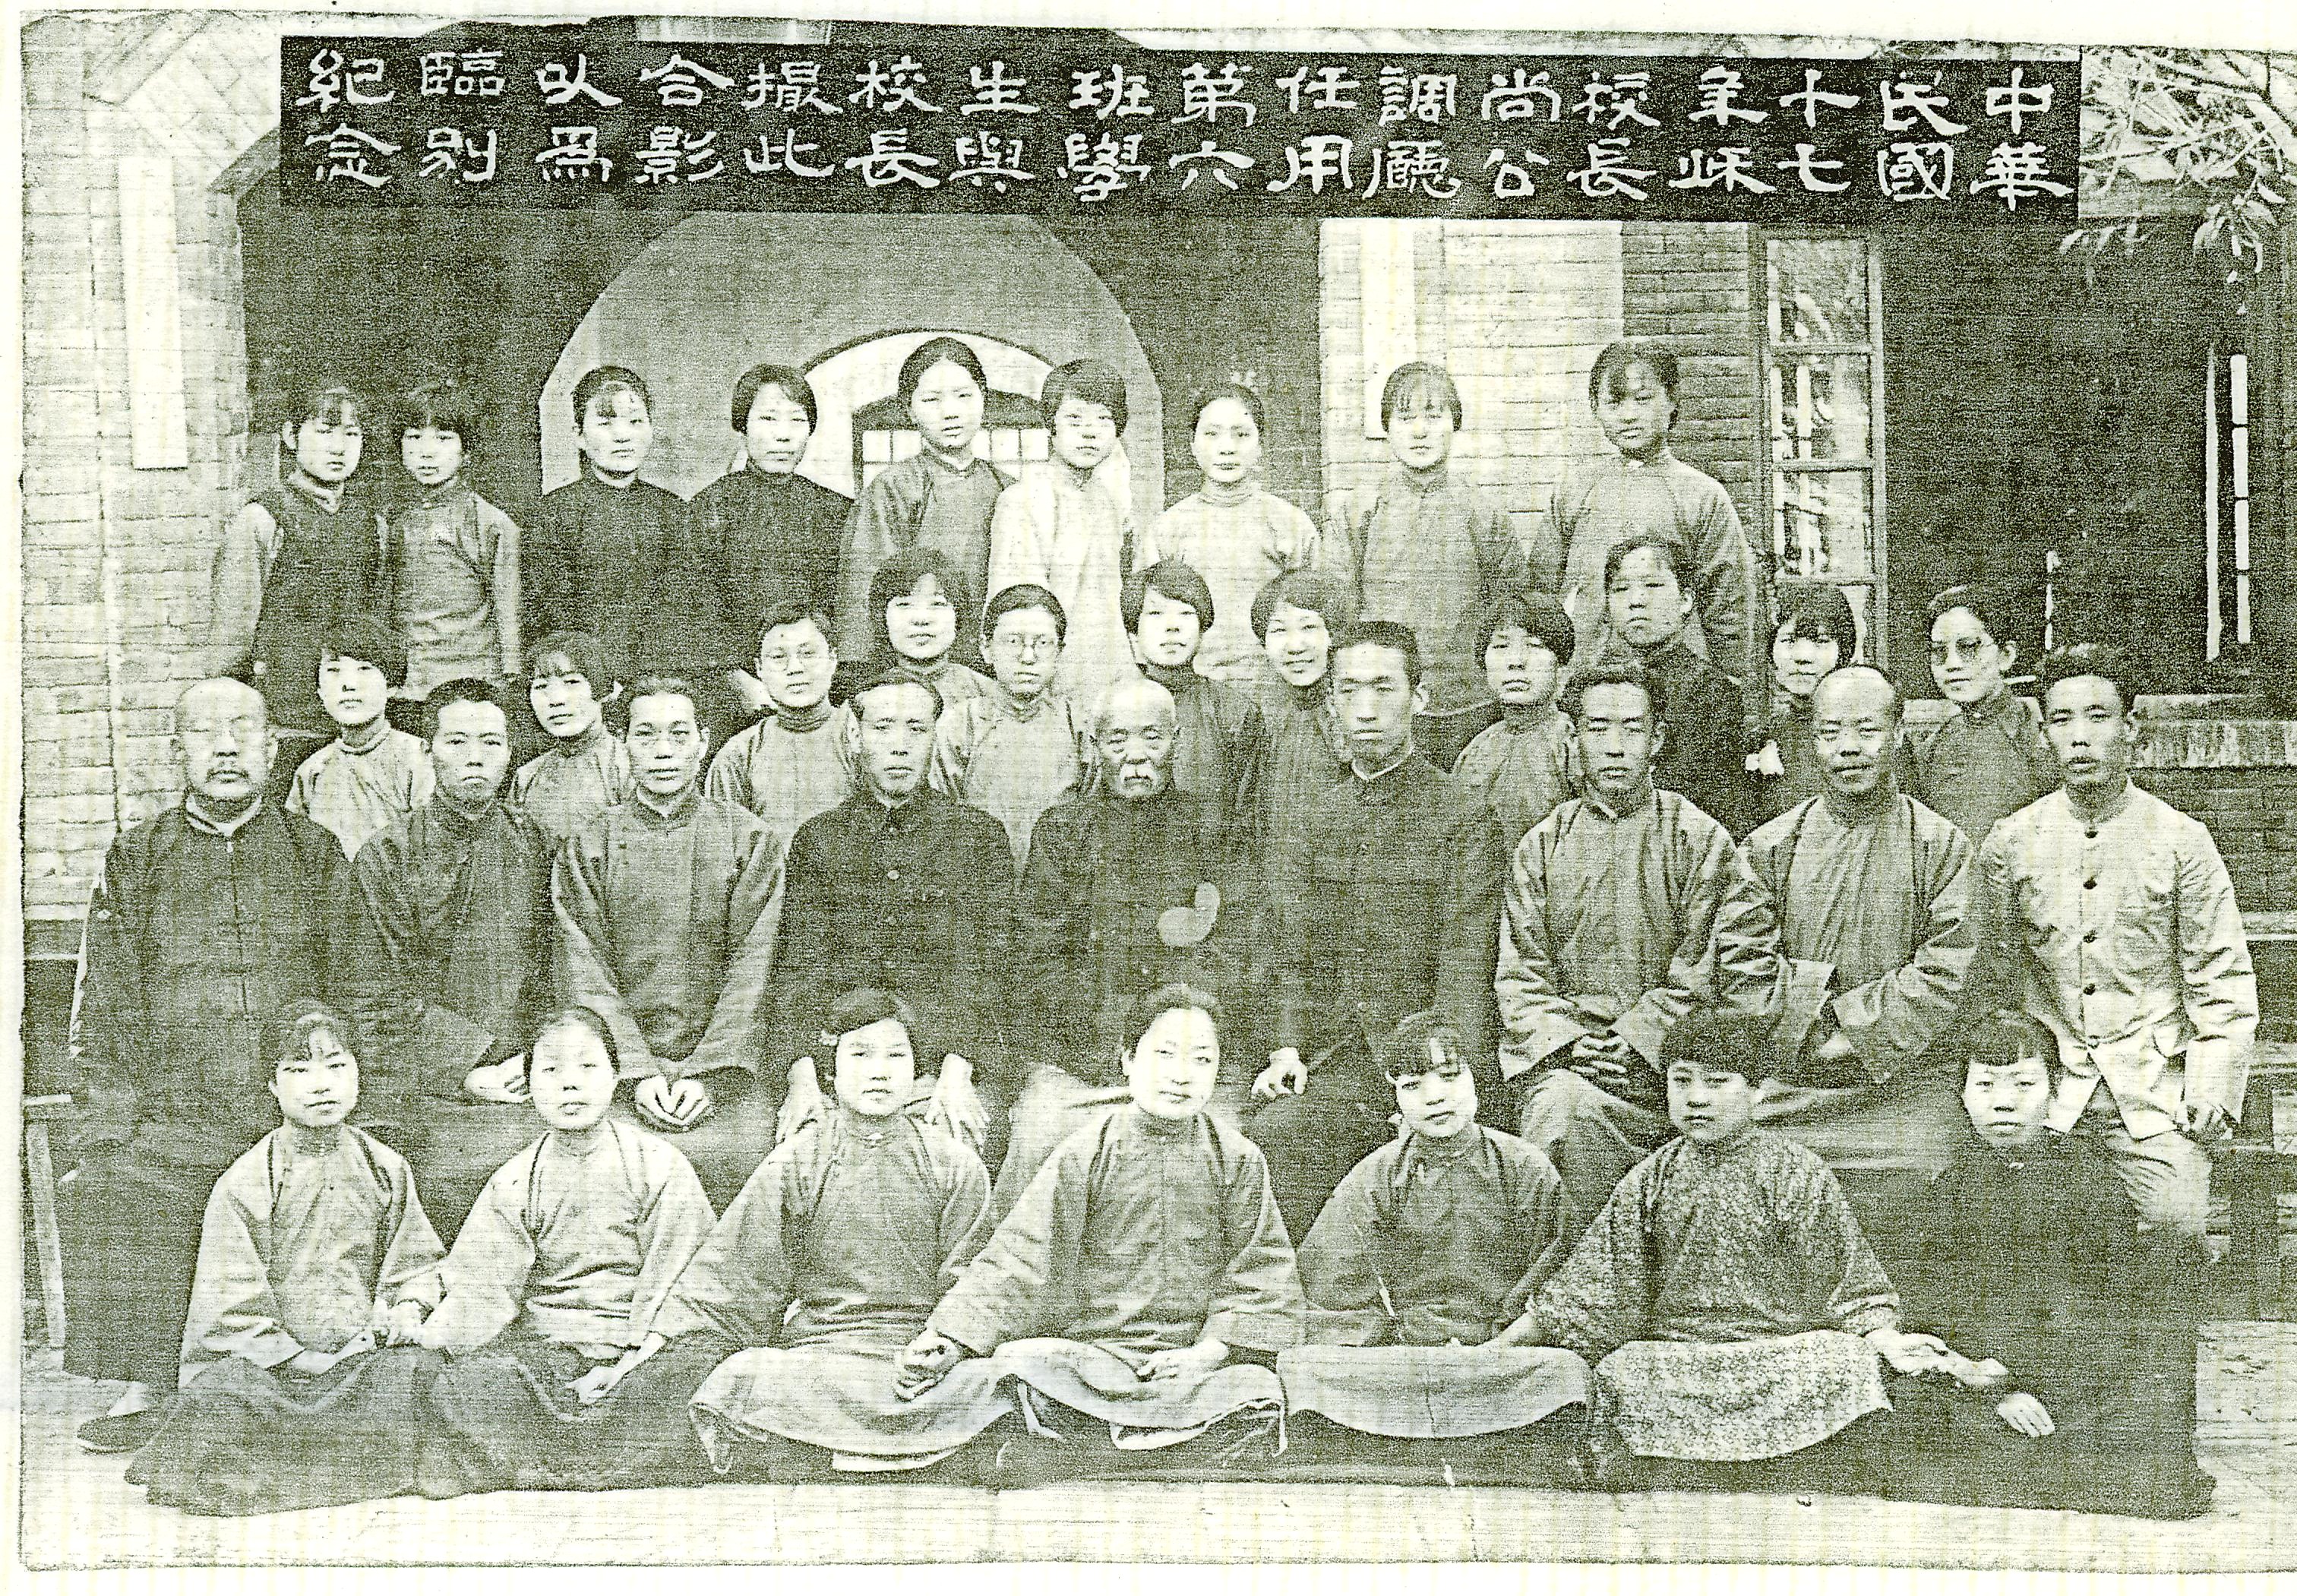 中華
民國
十七
年秋
校長
尚公
調廳
任用
第六
班學
生與
校長
撮此
合影
以爲
臨別
紀念